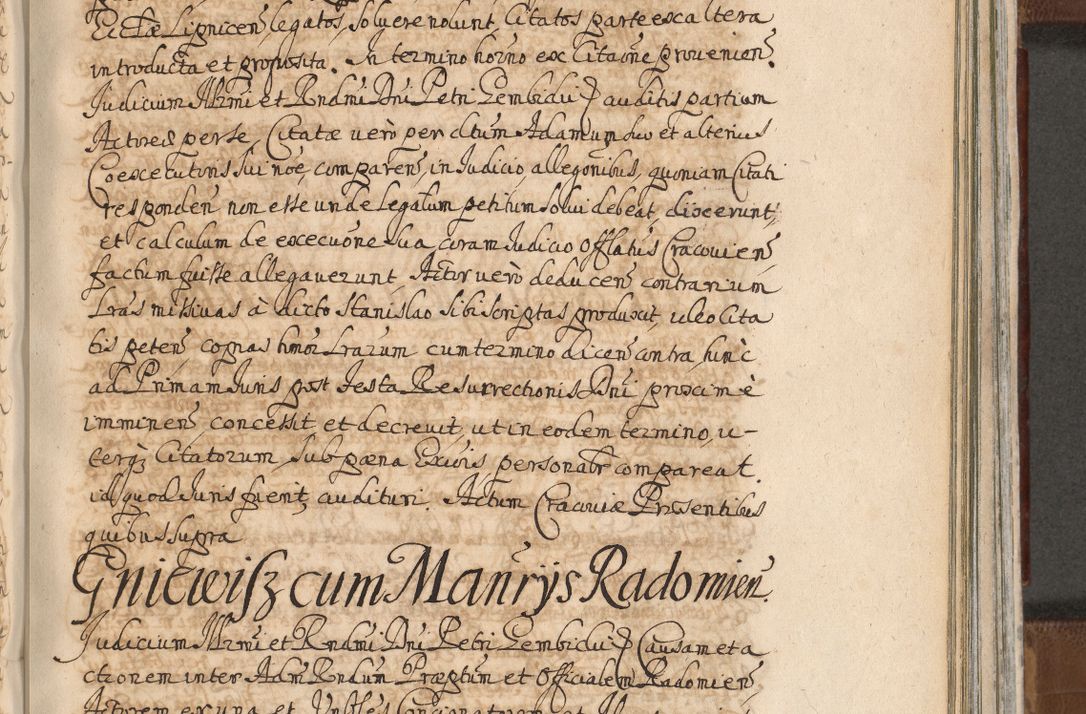 Eccłæ Lignicen̄ legatos, soluere nolunt, Citatos parte ex altera
introducta et proposita. In termino horno ex Citaōne prouenien̄.
Judicium Illrmi et Rndmi Dni Petri Gembicki auditis partium
Actores per se, Citatæ vero per dtum Adamum suo et alterius
Coexecutoris sui noe, comparen̄, in Judicio, allegonibus, quoniam Citati
responden̄ non esse unde legatum petitum solui debeat, dixerunt,
et calculum de execuōne sua coram Judicio Offlatus Cracouien̄
factum fuisse allegauerunt, Actor vero deducen̄ contrarium
Lras missiuas à dicto Stanislao sibi scriptas produxit, ideo Cita
tis peten̄ copias hmoi Lrarum cum termino dicen̄ contra, hinc
ad Primam Juris post Festa Resurrectionis Dni proximè
imminen̄, concessit et decreuit, ut in eodem termino, u-
terqз Citatorum, sub pæna Exĩois personalr compareat.
id quod Juris fuerit, audituri. Actum Cracouiæ Præsentibus
quibus supra
Gniewisz cum Manrijs Radomien̄.
Judicium Illrmi et Rndmi Dni Petri Gembicki Causam et a
ctionem inter Adm Rndum Præptum et Officialem Radomien̄
Actorem ex una et Unbles